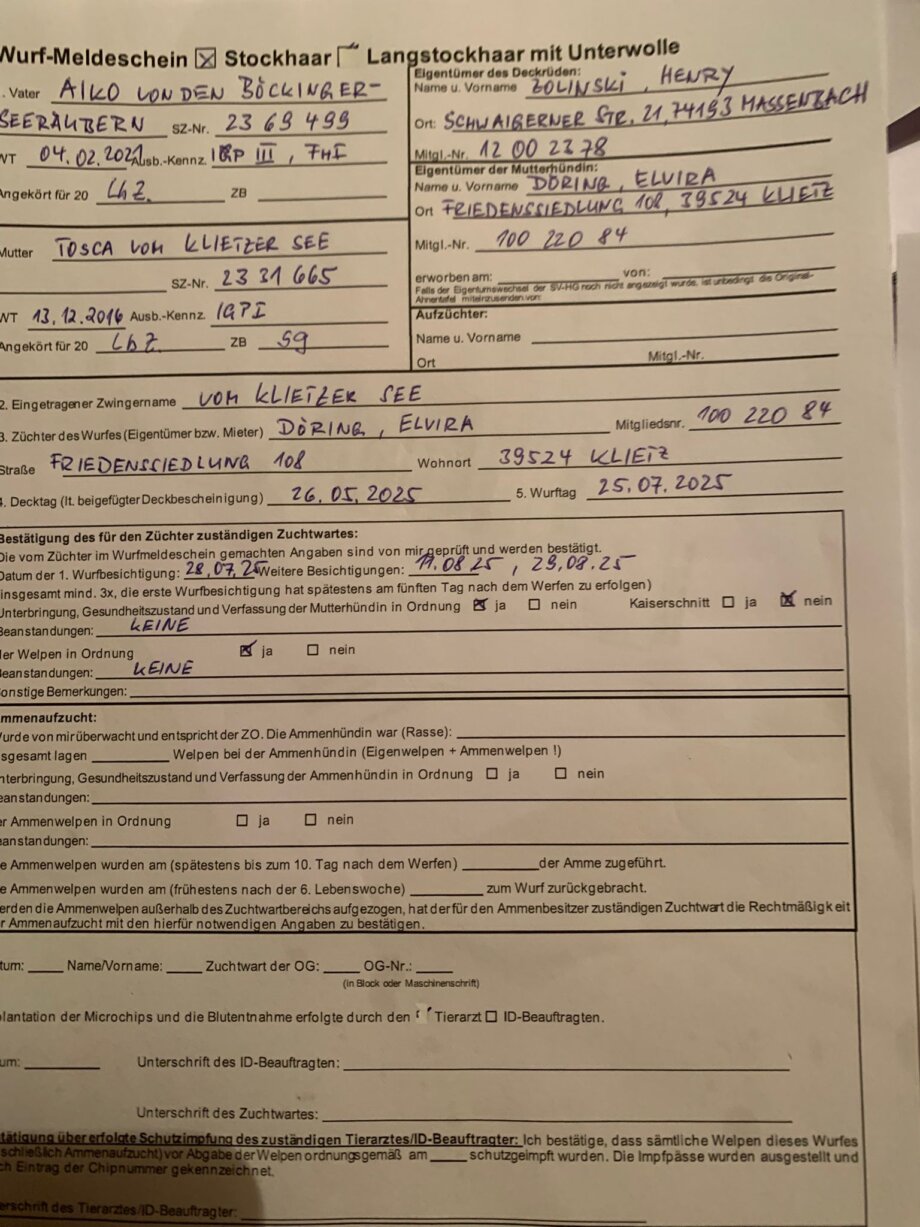 Wurf-Meldeschein ☒ Stockhaar Langstockhaar mit Unterwolle
. Vater AIKO VON DEN BÖCKINGER-
SEERÄUBERN SZ-Nr. 23 69 499
WT 04.02.2021 Ausb.-Kennz. IGP III, FH I
Angekört für 20 LbZ. ZB
Mutter TOSCA VOM KLIETZER SEE
SZ-Nr. 23 31 665
WT 13.12.2016 Ausb.-Kennz. IGP I
Angekört für 20 LbZ ZB SG
Eigentümer des Deckrüden:
Name u. Vorname ZOLINSKI, HENRY
Ort: SCHWAIGERNER STR. 21, 74193 MASSENBACH
Mitgl.-Nr. 12 00 23 78
Eigentümer der Mutterhündin:
Name u. Vorname DÖRING, ELVIRA
Ort FRIEDENSSIEDLUNG 108, 39524 KLIETZ
Mitgl.-Nr. 100 220 84
erworben am: von:
Falls der Eigentumswechsel der SV-HG noch nicht angezeigt wurde, ist unbedingt die Original-
Ahnentafel miteinzusenden von:
Aufzüchter:
Name u. Vorname
Ort Mitgl.-Nr.
2. Eingetragener Zwingername VOM KLIETZER SEE
3. Züchter des Wurfes (Eigentümer bzw. Mieter) DÖRING, ELVIRA Mitgliedsnr. 100 220 84
Straße FRIEDENSSIEDLUNG 108 Wohnort 39524 KLIETZ
4. Decktag (lt. beigefügter Deckbescheinigung) 26.05.2025 5. Wurftag 25.07.2025
Bestätigung des für den Züchter zuständigen Zuchtwartes:
Die vom Züchter im Wurfmeldeschein gemachten Angaben sind von mir geprüft und werden bestätigt.
Datum der 1. Wurfbesichtigung: 28.07.25 Weitere Besichtigungen: 11.08 25, 29.08.25
insgesamt mind. 3x, die erste Wurfbesichtigung hat spätestens am fünften Tag nach dem Werfen zu erfolgen)
Unterbringung, Gesundheitszustand und Verfassung der Mutterhündin in Ordnung ☒ ja ☐ nein Kaiserschnitt ☐ ja ☒ nein
Beanstandungen: KEINE
der Welpen in Ordnung ☒ ja ☐ nein
Beanstandungen: KEINE
Sonstige Bemerkungen:
mmenaufzucht:
urde von mir überwacht und entspricht der ZO. Die Ammenhündin war (Rasse):
sgesamt lagen Welpen bei der Ammenhündin (Eigenwelpen + Ammenwelpen !)
nterbringung, Gesundheitszustand und Verfassung der Ammenhündin in Ordnung ☐ ja ☐ nein
eanstandungen:
er Ammenwelpen in Ordnung ☐ ja ☐ nein
eanstandungen:
e Ammenwelpen wurden am (spätestens bis zum 10. Tag nach dem Werfen) der Amme zugeführt.
e Ammenwelpen wurden am (frühestens nach der 6. Lebenswoche) zum Wurf zurückgebracht.
erden die Ammenwelpen außerhalb des Zuchtwartbereichs aufgezogen, hat der für den Ammenbesitzer zuständigen Zuchtwart die Rechtmäßigkeit
r Ammenaufzucht mit den hierfür notwendigen Angaben zu bestätigen.
tum: Name/Vorname: Zuchtwart der OG: OG-Nr.:
(in Block oder Maschinenschrift)
plantation der Microchips und die Blutentnahme erfolgte durch den Tierarzt ☐ ID-Beauftragten.
um: Unterschrift des ID-Beauftragten:
Unterschrift des Zuchtwartes:
tätigung über erfolgte Schutzimpfung des zuständigen Tierarztes/ID-Beauftragter: Ich bestätige, dass sämtliche Welpen dieses Wurfes
schließlich Ammenaufzucht) vor Abgabe der Welpen ordnungsgemäß am schutzgeimpft wurden. Die Impfpässe wurden ausgestellt und
ch Eintrag der Chipnummer gekennzeichnet.
erschrift des Tierarztes/ID-Beauftragter: